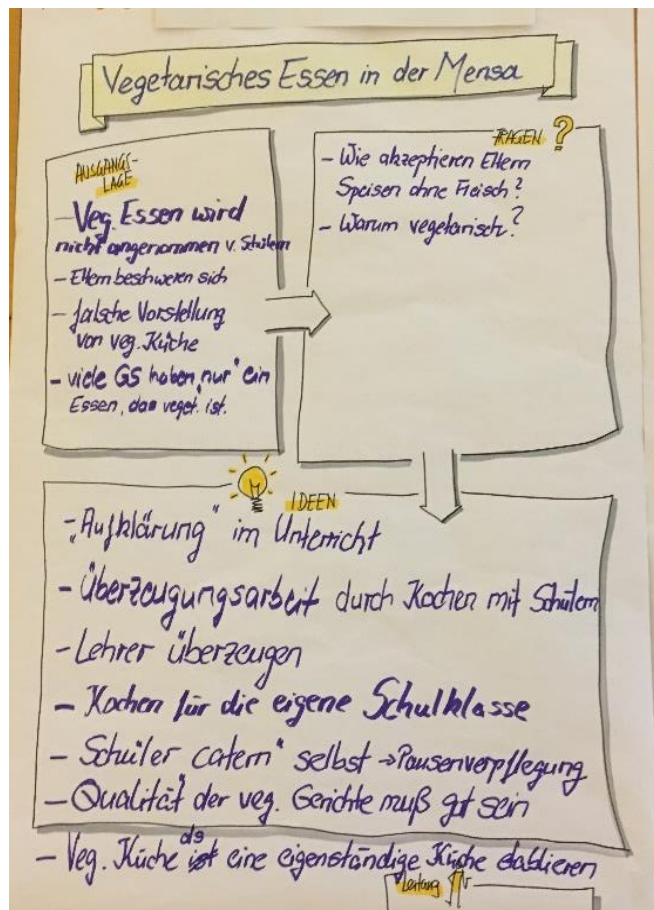 Vegetarisches Essen in der Mensa
AUSGANGS-
LAGE
- Veg. Essen wird
nicht angenommen v. Schülern
- Eltern beschweren sich
- falsche Vorstellung
von veg. Küche
- viele GS haben „nur“ ein
Essen, das veget. ist.
FRAGEN ?
- Wie akzeptieren Eltern
Speisen ohne Fleisch?
- Warum vegetarisch?
IDEEN
- „Aufklärung“ im Unterricht
- Überzeugungsarbeit durch Kochen mit Schülern
- Lehrer überzeugen
- Kochen für die eigene Schulklasse
- Schüler „catern“ selbst → Pausenverpflegung
- Qualität der veg. Gerichte muß gut sein
- Veg. Küche als eine eigenständige Küche etablieren
Leitung